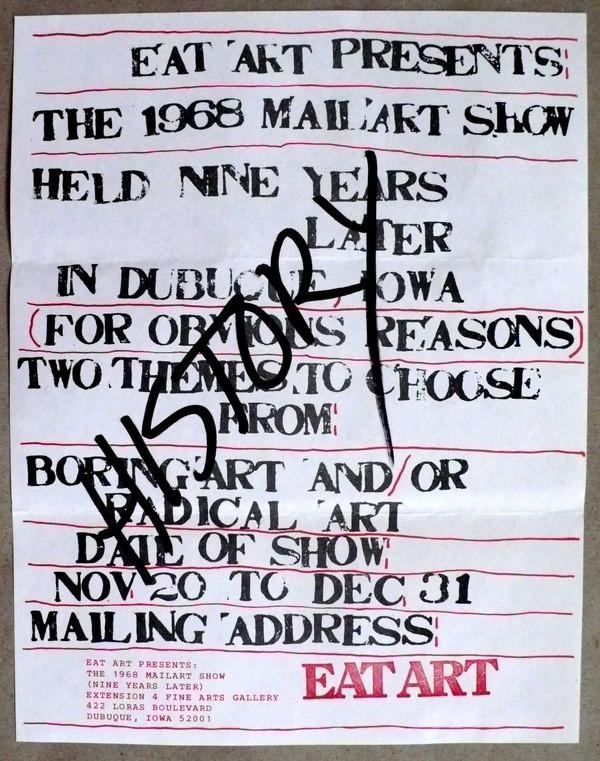 EAT ART PRESENTS:
THE 1968 MAILART SHOW
HELD NINE YEARS
LATER
IN DUBUQUE, IOWA
(FOR OBVIOUS REASONS)
TWO THEMES TO CHOOSE
FROM:
BORING ART AND/OR
RADICAL ART
DATE OF SHOW:
NOV. 20 TO DEC. 31
MAILING ADDRESS:
HISTORY
EAT ART PRESENTS:
THE 1968 MAILART SHOW
(NINE YEARS LATER)
EXTENSION 4 FINE ARTS GALLERY
422 LORAS BOULEVARD
DUBUQUE, IOWA 52001
EAT ART